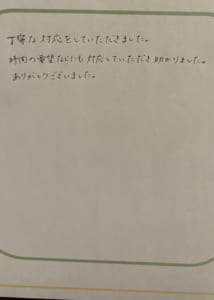 丁寧な対応をしていただきました。
時間の希望などにも対応していただき助かりました。
ありがとうございました。